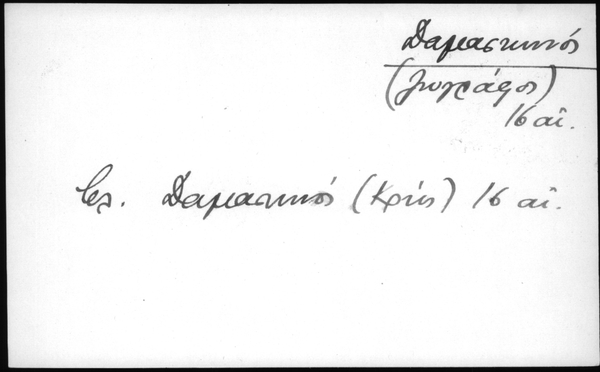 Δαμασκηνός
(ζωγράφος)
16 αἰ.
βλ. Δαμασκηνός (Κρής) 16 αἰ.